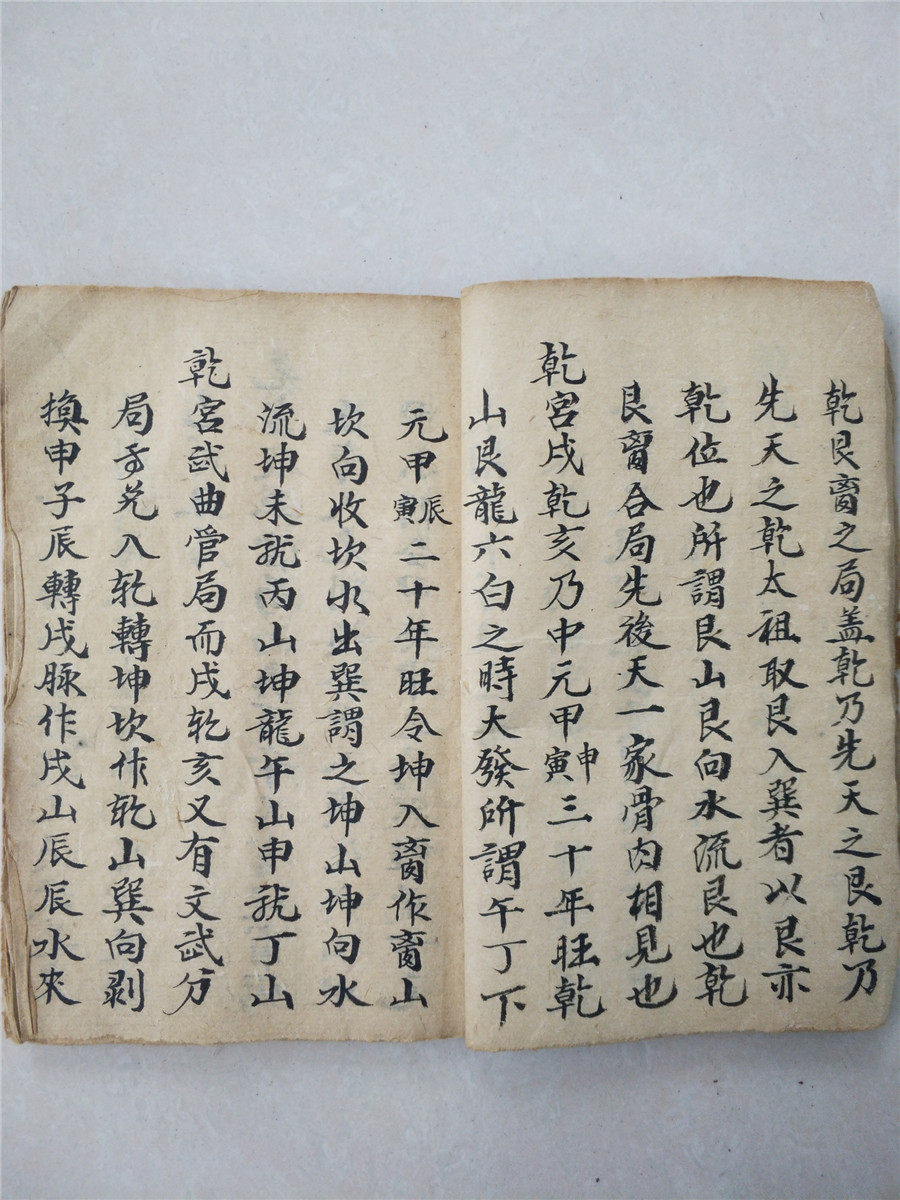 乾艮离之局盖乾乃先天之艮乾乃
先天之乾太祖取艮入巽者以艮亦
乾位也所謂艮山艮向水流艮也乾
艮离合局先後天一家骨肉相見也
乾宮戌乾亥乃中元甲申寅三十年旺乾
山艮龍六白之時大發所謂午丁下
元甲辰寅二十年旺令坤入离作离山
坎向收坎水出巽謂之坤山坤向水
流坤未就丙山坤龍午山申就丁山
乾宮武曲管局而戌乾亥又有文武分
局兑入乾轉坤坎作乾山巽向剥
換申子辰轉戌脉作戌山辰辰水來